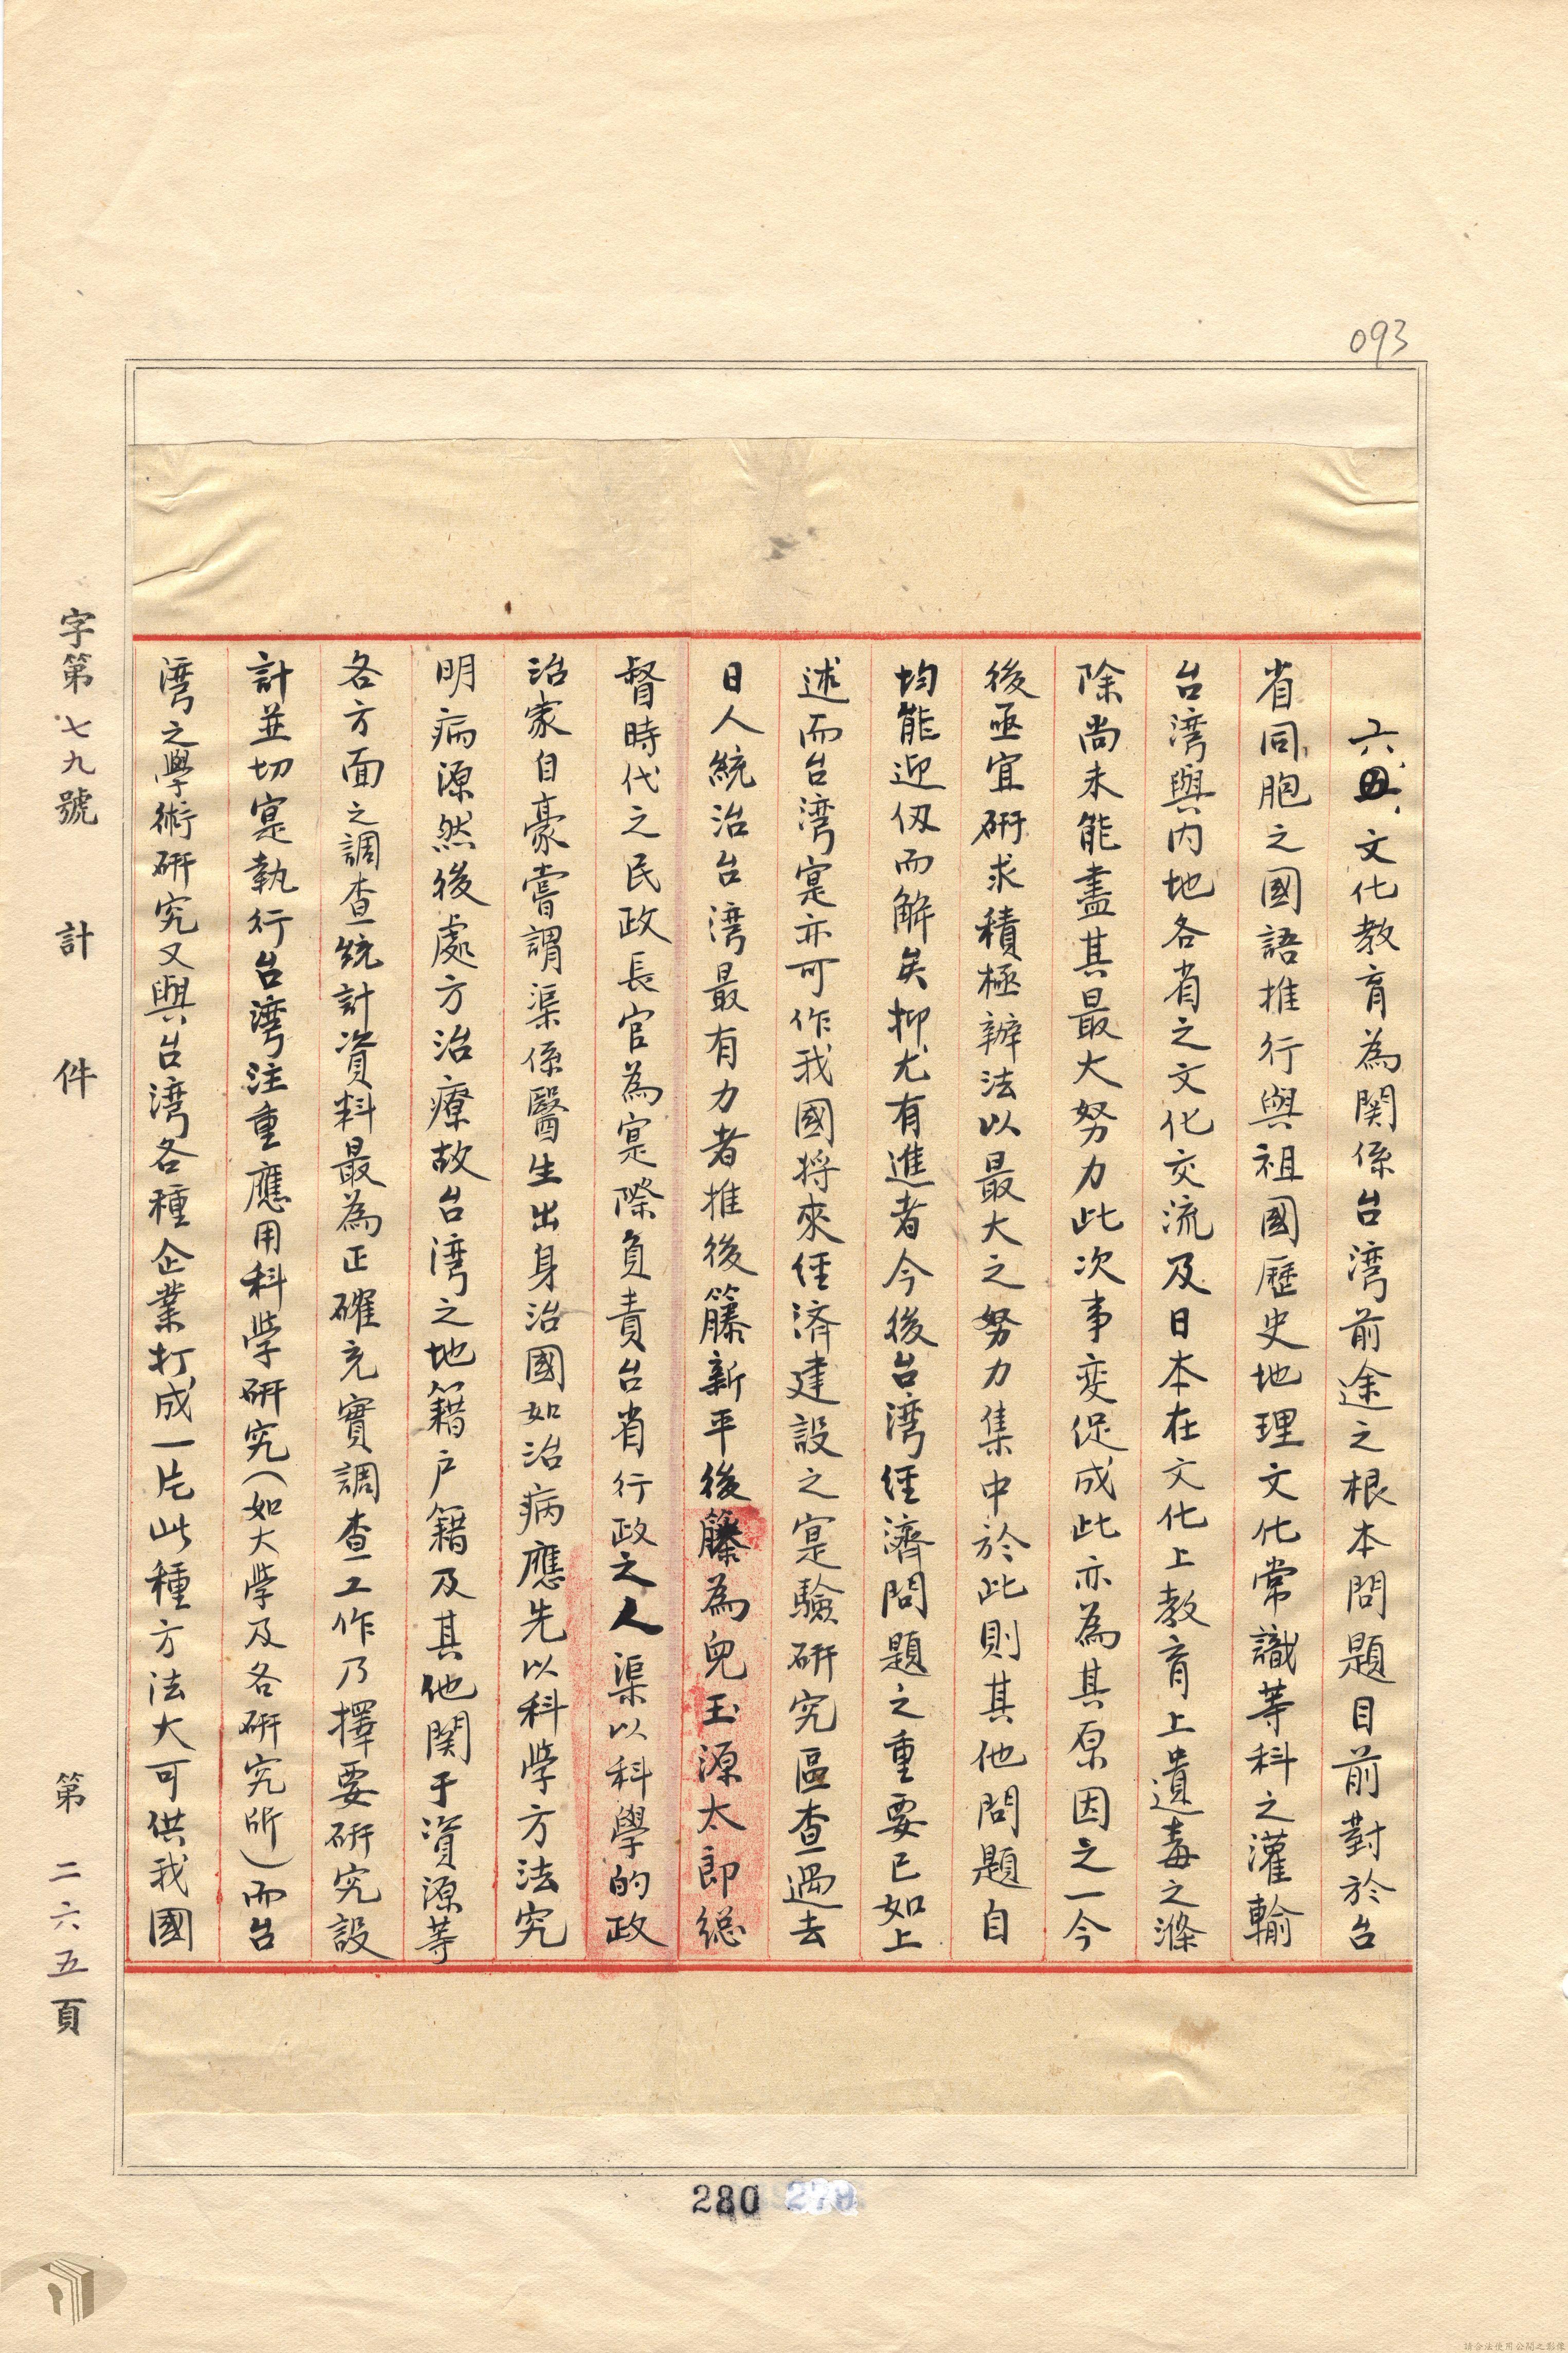 093
六、五、文化教育為関係台湾前途之根本問題目前對於台
省同胞之國語推行與祖國歷史地理文化常識等科之灌輸
台湾與内地各省之文化交流及日本在文化上教育上遺毒之滌
除尚未能盡其最大努力此次事变促成此亦為其原因之一今
後亟宜研求積極辦法以最大之努力集中於此則其他問題自
均能迎刃而解矣抑尤有進者今後台湾経濟問題之重要已如上
述而台湾寔亦可作我國将來経済建設之寔驗研究區查過去
日人統治台湾最有力者推後籐新平後籐為兒玉源太郎総
督時代之民政長官為寔際負責台省行政之人渠以科學的政
治家自豪嘗謂渠係醫生出身治國如治病應先以科学方法究
明病源然後處方治療故台湾之地籍户籍及其他関于資源等
各方面之調查統計資料最為正確充實調查工作乃擇要研究設
計並切寔執行台湾注重應用科学研究(如大学及各研究所)而台
湾之學術研究又與台湾各種企業打成一片此種方法大可供我國
字第七九號 計 件 第二六五頁
280 279
請合法使用公開之影像